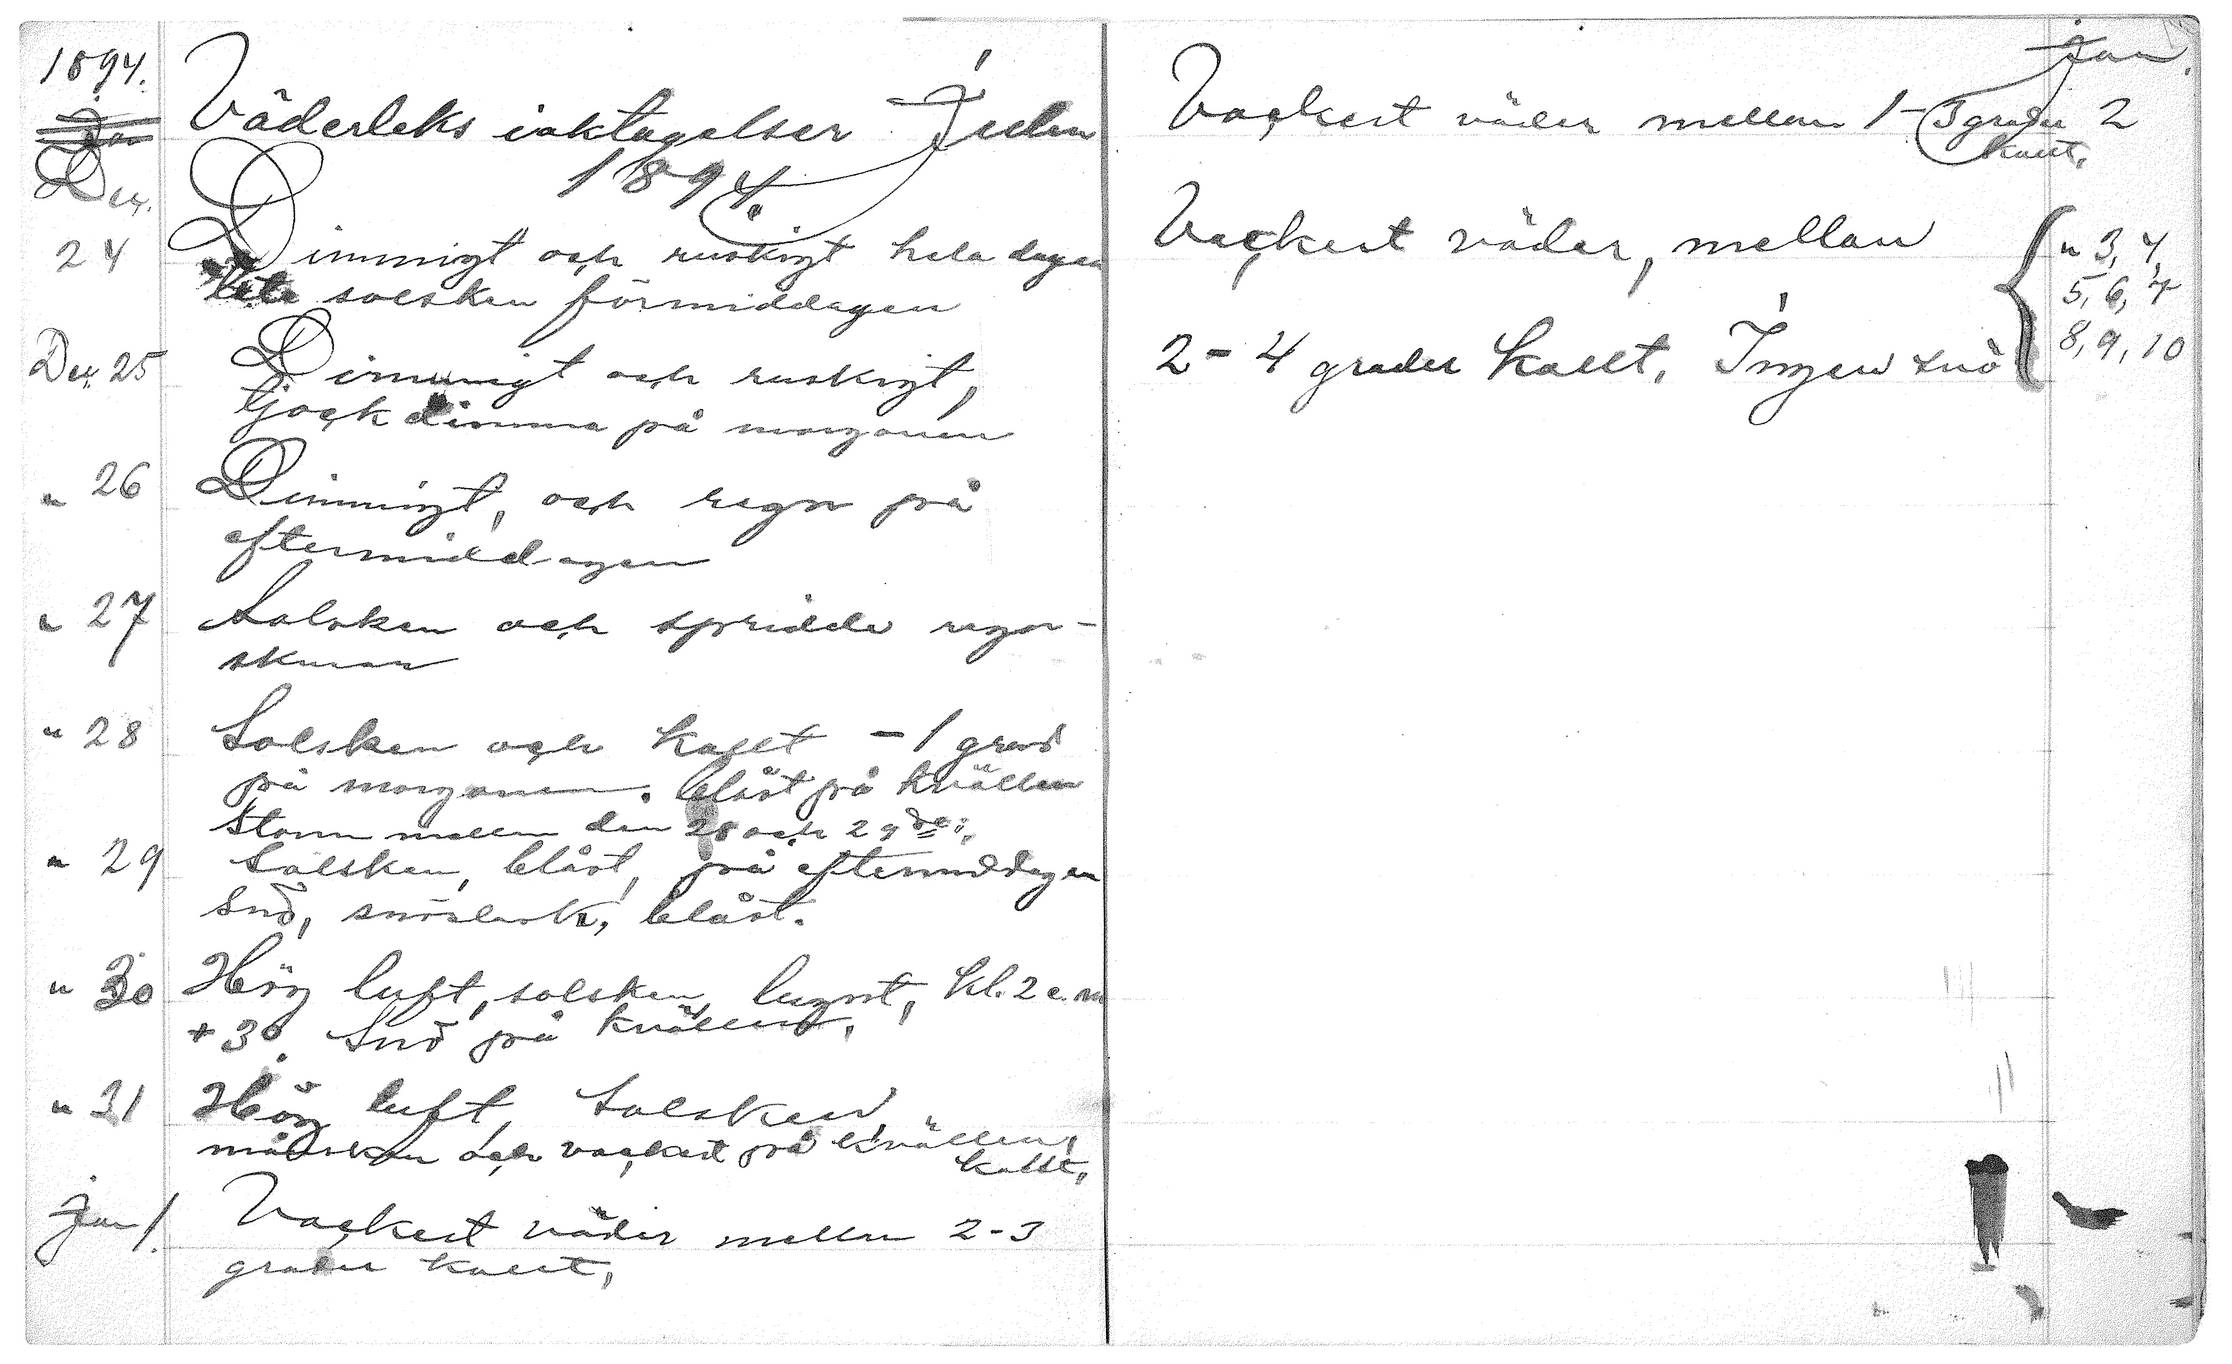 1894.
Väderleks iaktagelser Julen
1894.
Dec.
24 Dimmigt och ruskigt hela dagen
lite solsken förmiddagen
Dec. 25 Dimmigt och ruskigt,
tjock dimma på morgonen
" 26 Dimmigt, och regn på
eftermiddagen
" 27 Solsken och spridda regn-
skurar
" 28 Solsken och kallt - 1 grad
på morgonen. blåst på kvällen
Storm mellan den 28 och 29de;
" 29 Solsken, blåst, på eftermiddagen
Snö, snöslask, blåst.
" 30 Hög luft, solsken, lugnt, kl. 2 e.m
+ 3°. Snö på kvällen.
" 31 Hög luft, Solsken,
månsken och vackert på kvällen,
kallt,
Jan 1. Vackert väder mellan 2-3
grader kallt,
Jan.
Vackert väder mellan 1-3 grader 2
kallt,
Vackert väder, mellan " 3, 4,
5, 6, 7
2 - 4 grader kallt. Ingen snö 8, 9, 10